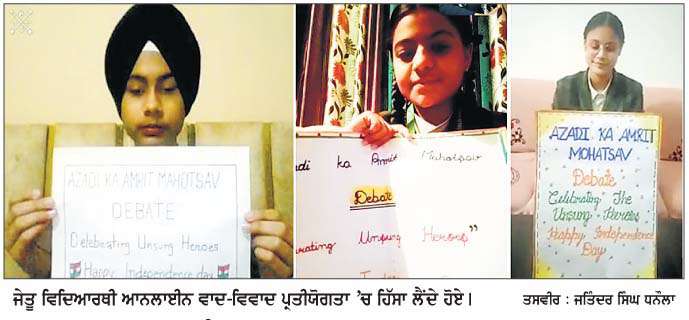 AZADI KA AMRIT MAHOTSAV
DEBATE
Celebrating Unsung Heroes
Happy Independence day
ka Amrit Mahotsav
Debate
Unsung Heroes"
AZADI KA AMRIT
MOHATSAV
Debate
Celebrating The
Unsung Heroes
Happy Independence
Day
ਜੇਤੂ ਵਿਦਿਆਰਥੀ ਆਨਲਾਈਨ ਵਾਦ-ਵਿਵਾਦ ਪ੍ਰਤੀਯੋਗਤਾ 'ਚ ਹਿੱਸਾ ਲੈਂਦੇ ਹੋਏ।
ਤਸਵੀਰ : ਜਤਿੰਦਰ ਸਿੰਘ ਧਨੌਲਾ